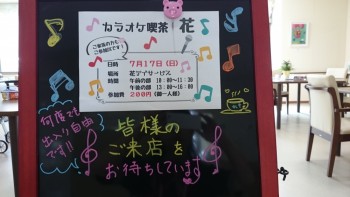 カラオケ喫茶 花
ご家族の方も
ご参加OKです!
日時 7月17日(日)
場所 花デイサービス
時間 午前の部 10:00〜11:30
午後の部 13:00〜16:00
参加費 200円(御一人様)
何度でも
出入り自由
です!!
皆様の
ご来店を
お待ちしています